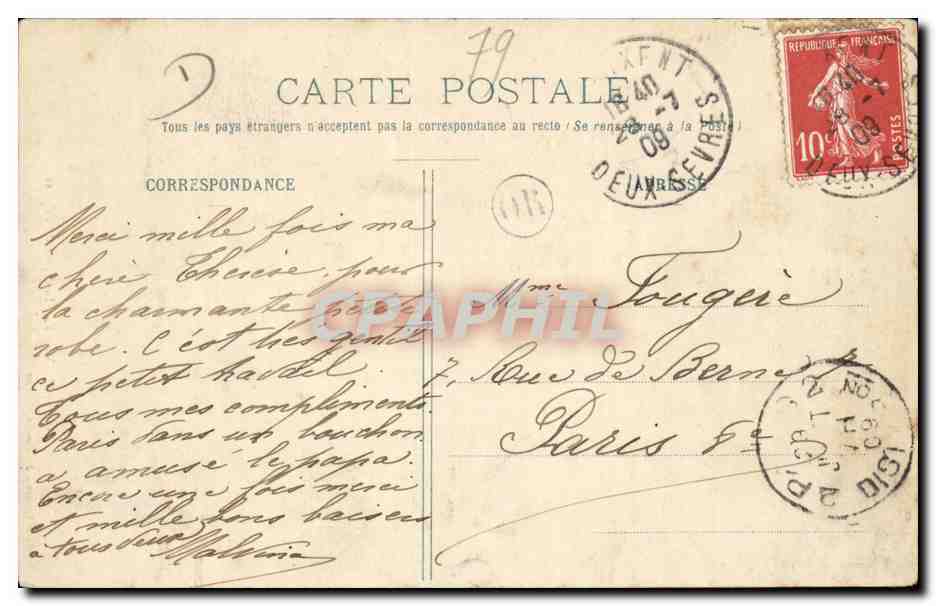 79
CARTE POSTALE
Tous les pays étrangers n'acceptent pas la correspondance au recto (Se renseigner à la Poste)
CORRESPONDANCE
ADRESSE
IXENT
18 40
28 -7
09
DEUX-SEVRES
REPUBLIQUE FRANÇAISE
10c
POSTES
OR
Merci mille fois ma
chère Thérèse, pour
la charmante petite
robe. C'est très gentil
ce petit travail.
Tous mes compliments.
Paris dans un bouchon
a amusé le papa.
Encore une fois merci
et mille bons baisers
à tous deux
Malvina
Mme Fougère
7, Rue de Berne
Paris 8e
CPAPHIL